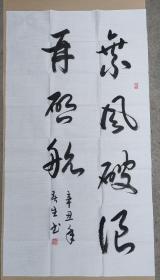 乘风破浪
再启航
辛丑年
春生书